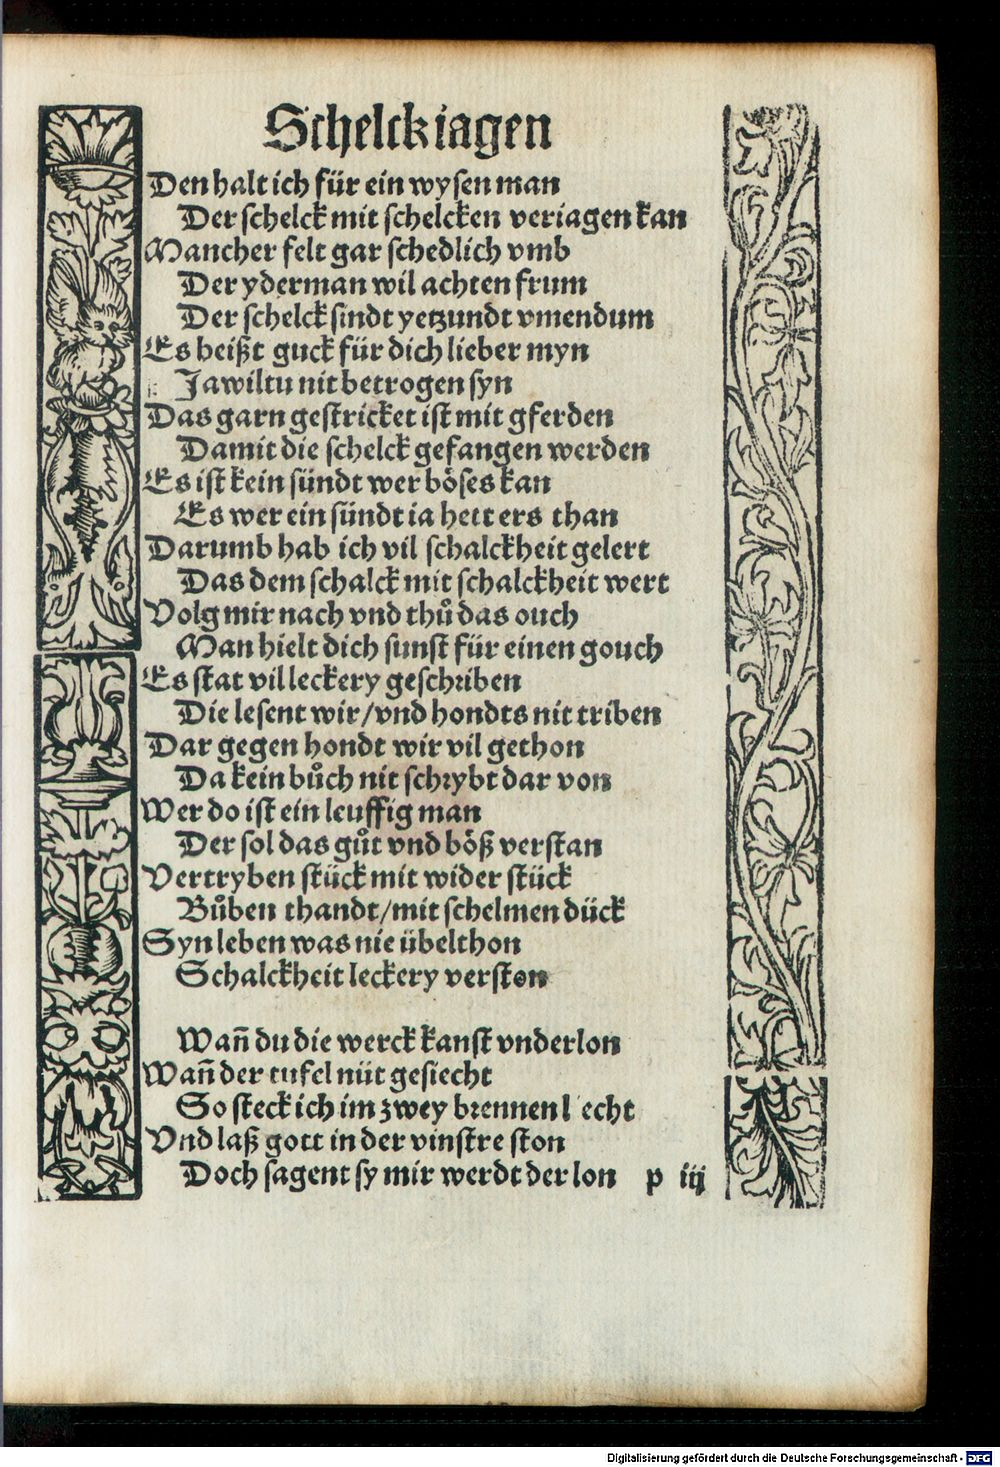 Schelck iagen
Den halt ich für ein wysen man
Der schelck mit schelcken veriagen kan
Mancher felt gar schedlich vmb
Der yderman wil achten frum
Der schelck sindt yetzundt vmendum
Es heißt guck für dich lieber myn
Ja wiltu nit betrogen syn
Das garn gestricket ist mit gferden
Damit die schelck gefangen werden
Es ist kein sündt wer böses kan
Es wer ein sündt ia hett ers than
Darumb hab ich vil schalckheit gelert
Das dem schalck mit schalckheit wert
Volg mir nach vnd thů das ouch
Man hielt dich sunst für einen gouch
Es stat vil leckery geschriben
Die lesent wir/vnd hondts nit triben
Dar gegen hondt wir vil gethon
Da kein bůch nit schrybt dar von
Wer do ist ein leuffig man
Der sol das gůt vnd böß verstan
Vertryben stück mit wider stück
Bůben thandt/mit schelmen dück
Syn leben was nie übel thon
Schalckheit leckery verston
Wañ du die werck kanst vnderlon
Wañ der tufel nüt gesiecht
So steck ich im zwey brennen l echt
Vnd laß gott in der vinstre ston
Doch sagent sy mir werdt der lon p iij
Digitalisierung gefördert durch die Deutsche Forschungsgemeinschaft - DFG